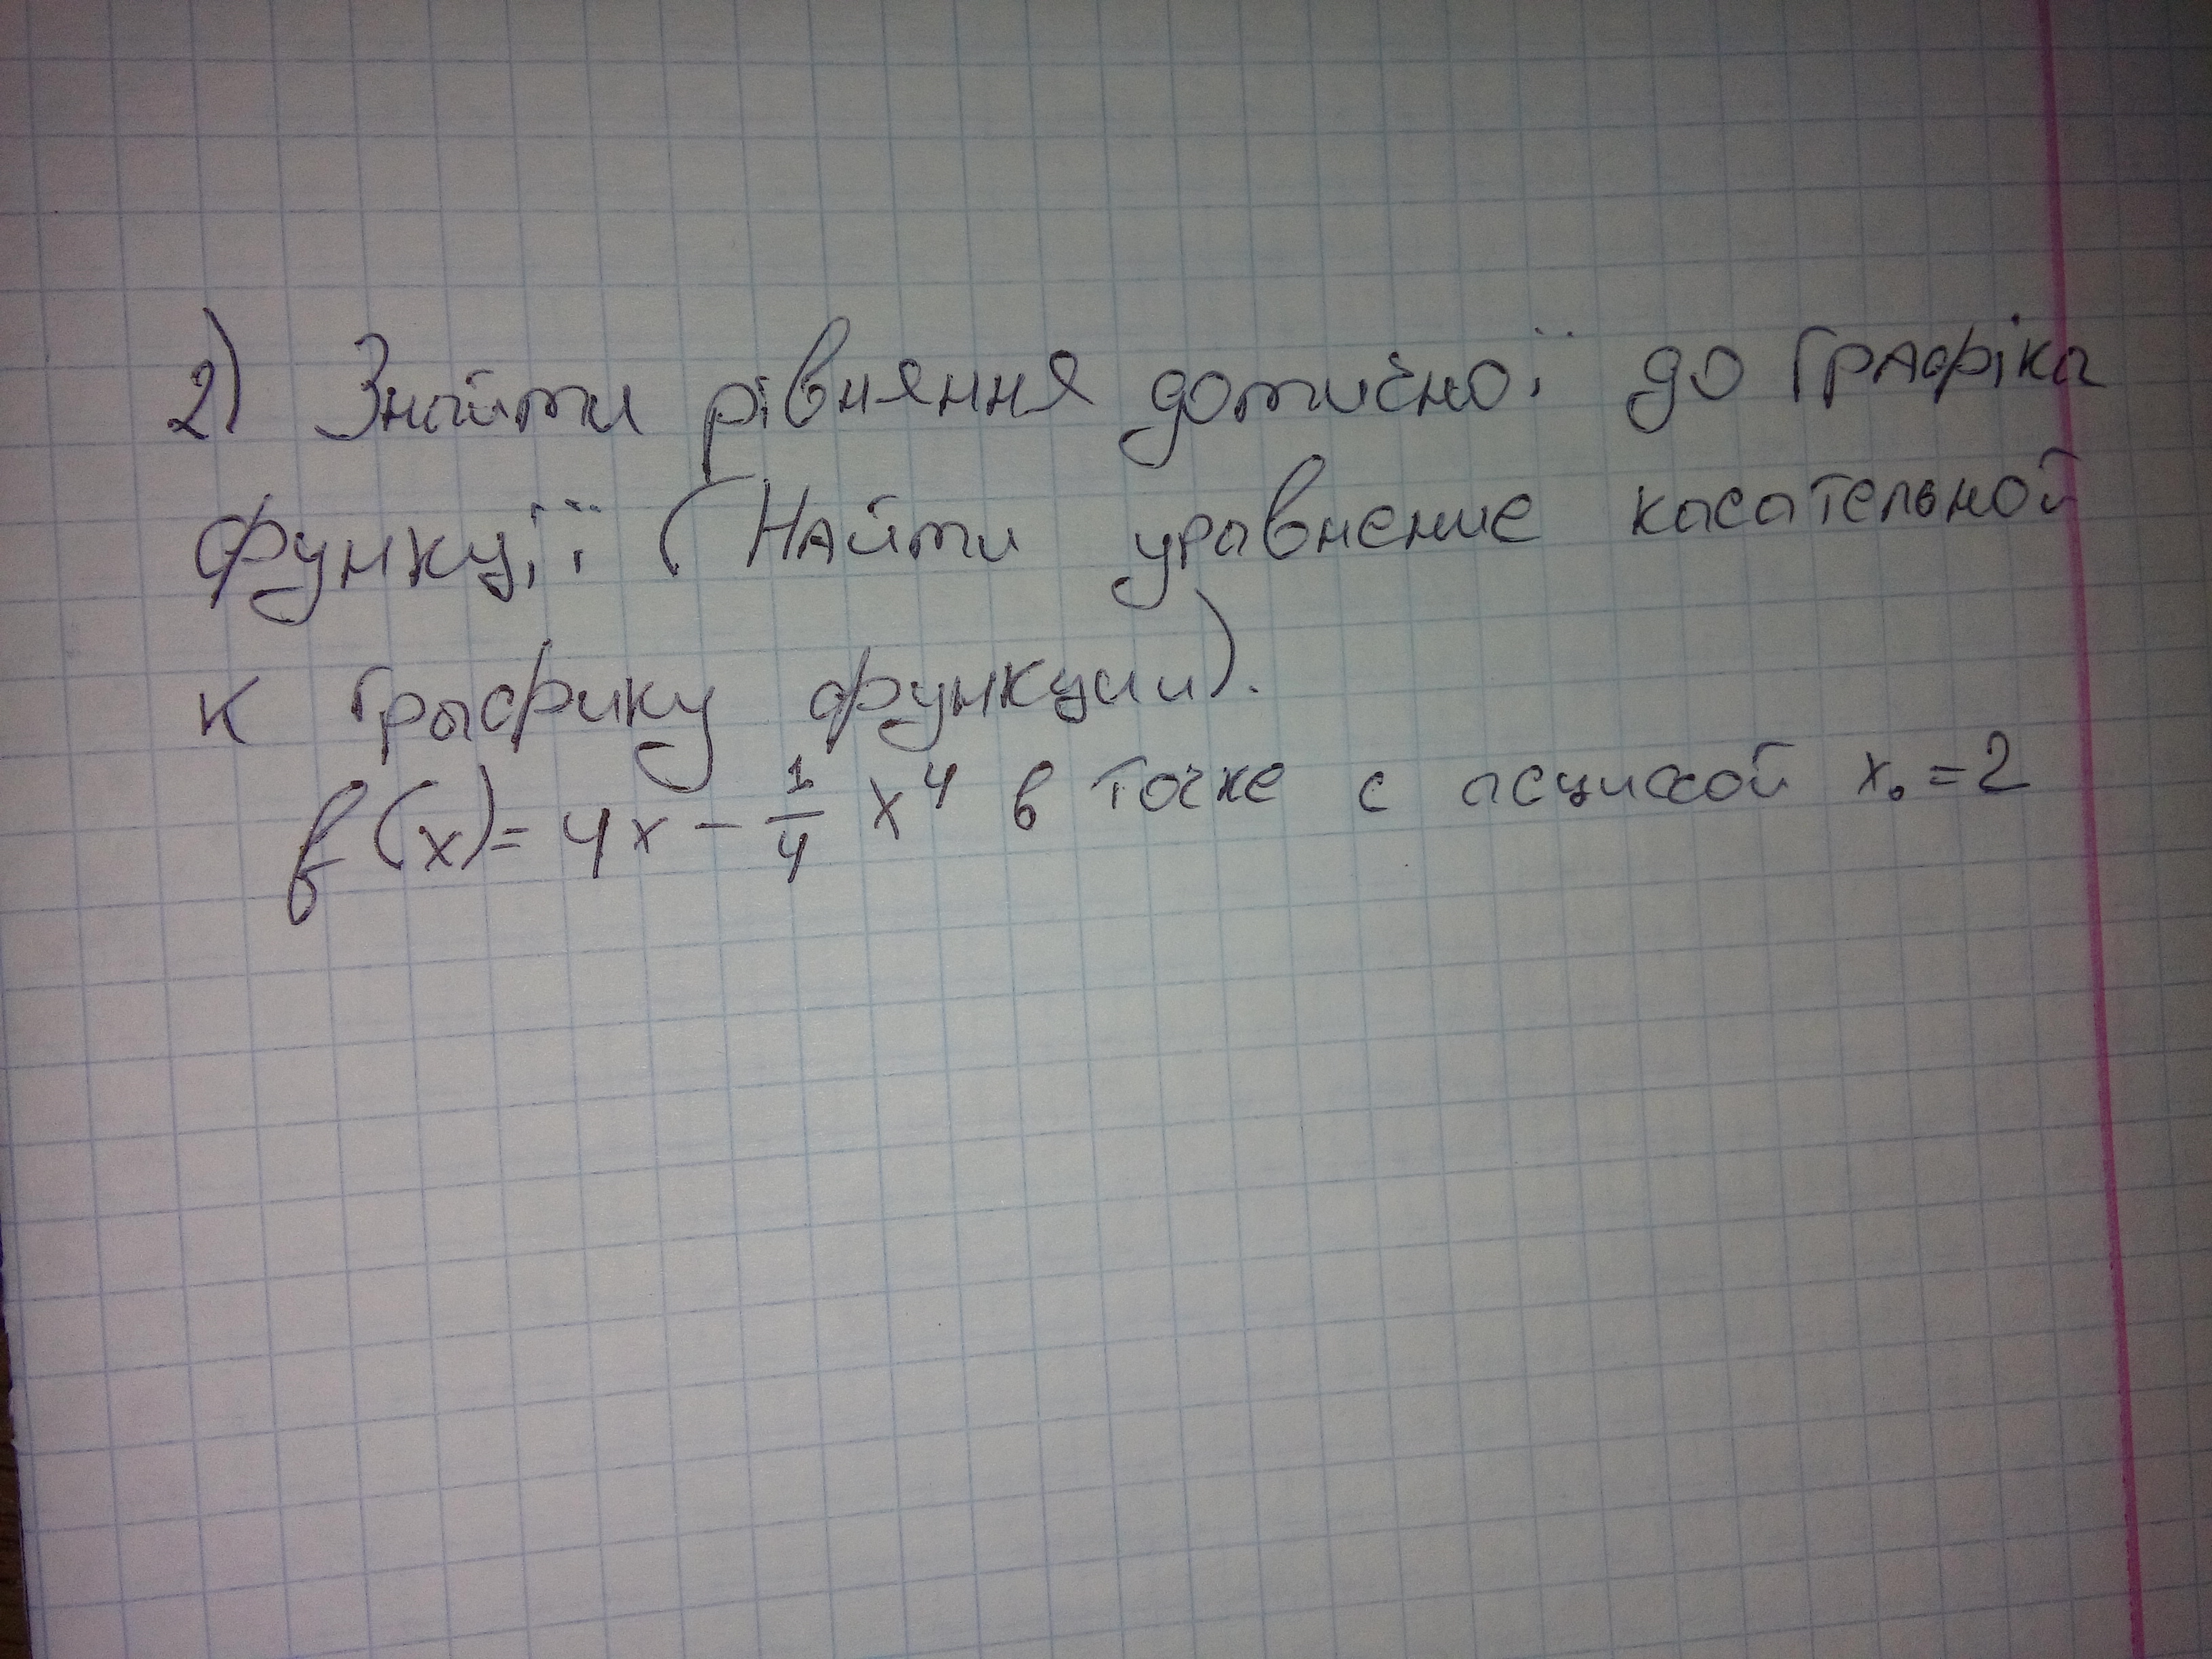 2) Знайти рівняння дотичної до графіка
функції (Найти уравнение касательной
к графику функции).
f(x)= 4x - 1/4 x⁴ в точке с асциссой x₀ = 2